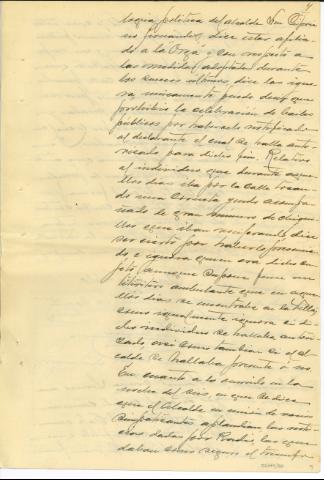 logia política del alcalde Don Cipria
no Fernandez, dice estar afilia
do a la Orga. Con respecto a
las medidas adoptadas durante
los sucesos últimos, dice las igno
ra, unicamente puede decir que
prohibió la celebración de bailes
públicos por haberselo notificado
al declarante el cual se halla auto
rizado para dicho fin. Relativo
al individuo que durante aque
llos dias iba por la calle tocan
do una corneta yendo acompa
ñado de gran número de chiqui
llos que iban
ser cierto por haberlo presencia
do e ignora quien era dicho su
jeto, aunque supone fuese un
titiritero ambulante que en aque
llos dias se encontraba en la villa,
asi como igualmente ignora si di
cho individuo se hallaba embria
gado, asi como tambien si el al
calde se hallaba presente o no.
En cuanto a lo ocurrido en la
noche del seis, en que se dice
que el Alcalde en union de varios
simpatizantes aplaudian las noti
cias dadas por Radio, las que
daban como seguro el triunfo